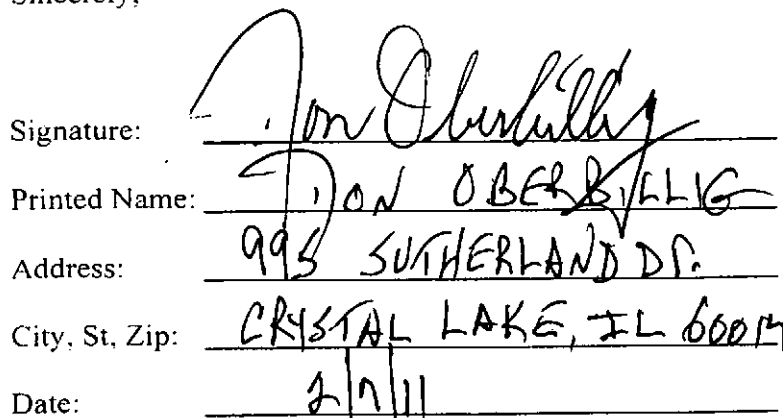 Sincerely,
Signature: Don Oberbillig
Printed Name: DON OBERBILLIG
Address: 995 SUTHERLAND DR.
City, St, Zip: CRYSTAL LAKE, IL 60014
Date: 2/7/11